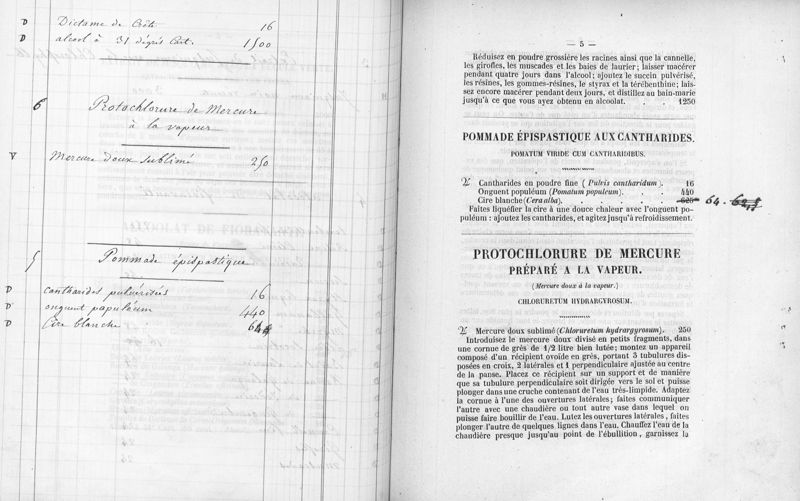 D Dictame de Crète 16
D alcool à 31 degrés Cart. 1500
6 Protochlorure de Mercure
à la vapeur
V Mercure doux sublimé 250
5 Pommade épispastique
D cantharides pulvérisées 16
D onguent populéum 440
D Cire blanche 64
— 5 —
Réduisez en poudre grossière les racines ainsi que la cannelle,
les girofles, les muscades et les baies de laurier; laisser macérer
pendant quatre jours dans l'alcool; ajoutez le succin pulvérisé,
les résines, les gommes-résines, le styrax et la térébenthine; lais-
sez encore macérer pendant deux jours, et distillez au bain-marie
jusqu'à ce que vous ayez obtenu en alcoolat. . . 1250
POMMADE ÉPISPASTIQUE AUX CANTHARIDES.
POMATUM VIRIDE CUM CANTHARIDIBUS.
♃ Cantharides en poudre fine (Pulvis cantharidum). 16
Onguent populéum (Pomatum populeum). . . 440
Cire blanche (Cera alba). . . . . . . 625 64.
Faites liquéfier la cire à une douce chaleur avec l'onguent po-
puléum: ajoutez les cantharides, et agitez jusqu'à refroidissement.
PROTOCHLORURE DE MERCURE
PRÉPARÉ A LA VAPEUR.
(Mercure doux à la vapeur.)
CHLORURETUM HYDRARGYROSUM.
♃ Mercure doux sublimé (Chloruretum hydrargyrosum). 250
Introduisez le mercure doux divisé en petits fragments, dans
une cornue de grès de 1/2 litre bien lutée; montez un appareil
composé d'un récipient ovoïde en grès, portant 3 tubulures dis-
posées en croix, 2 latérales et 1 perpendiculaire ajustée au centre
de la panse. Placez ce récipient sur un support et de manière
que sa tubulure perpendiculaire soit dirigée vers le sol et puisse
plonger dans une cruche contenant de l'eau très-limpide. Adaptez
la cornue à l'une des ouvertures latérales; faites communiquer
l'autre avec une chaudière ou tout autre vase dans lequel on
puisse faire bouillir de l'eau. Lutez les ouvertures latérales, faites
plonger l'autre de quelques lignes dans l'eau. Chauffez l'eau de la
chaudière presque jusqu'au point de l'ébullition, garnissez la